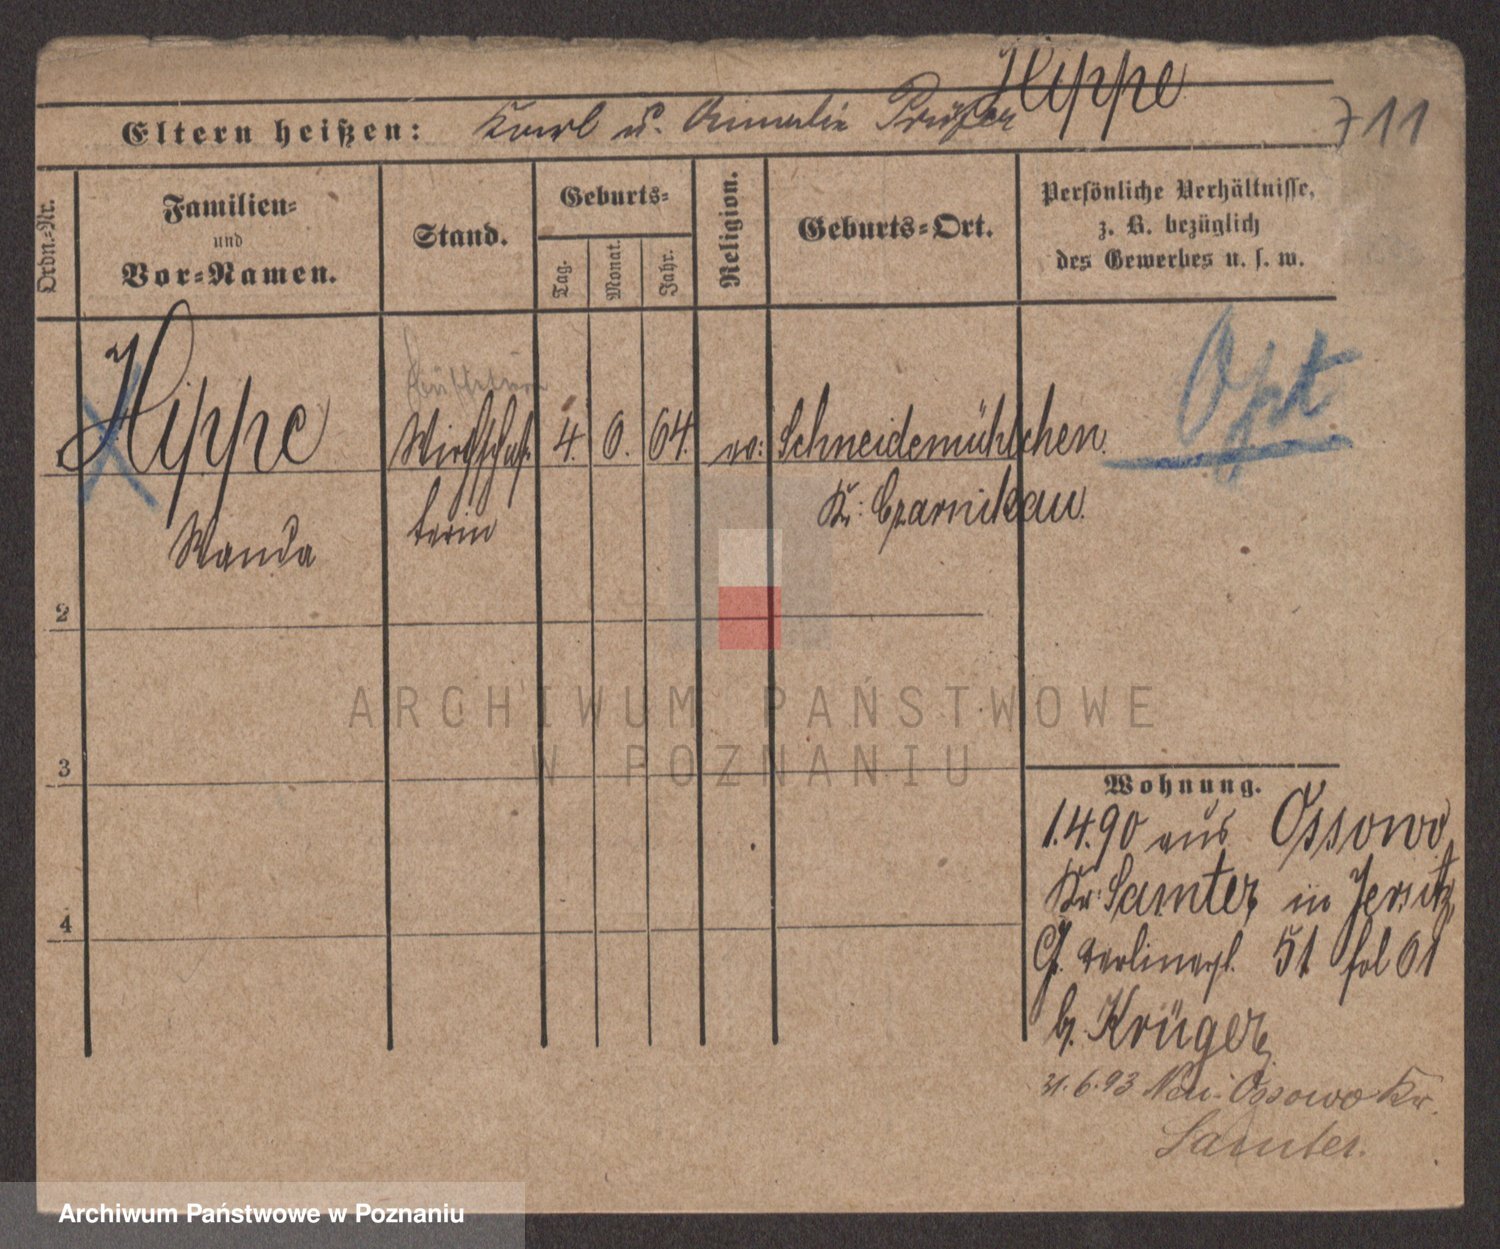 Hippe
Eltern heißen: Karl u. Amalie Prüfer
711
Ordn.-Nr.
Familien-
und
Vor-Namen.
Stand.
Geburts-
Tag.
Monat.
Jahr.
Religion.
Geburts-Ort.
Persönliche Verhältnisse,
z. B. bezüglich
des Gewerbes u. s. w.
Opt
Hippe Wirthschaf- 4. 6. 64. ev: Schneidemühlchen
Kr: Czarnikau
Wanda terin
2
3
4
ARCHIWUM PAŃSTWOWE
W POZNANIU
Wohnung.
1.4.90 aus Ossowo
Kr: Samter in Jersitz,
Gr. Berlinerst. 51 fol 61
b. Krüger
6.93 Neu-Ossowo Kr.
Samter.
Archiwum Państwowe w Poznaniu